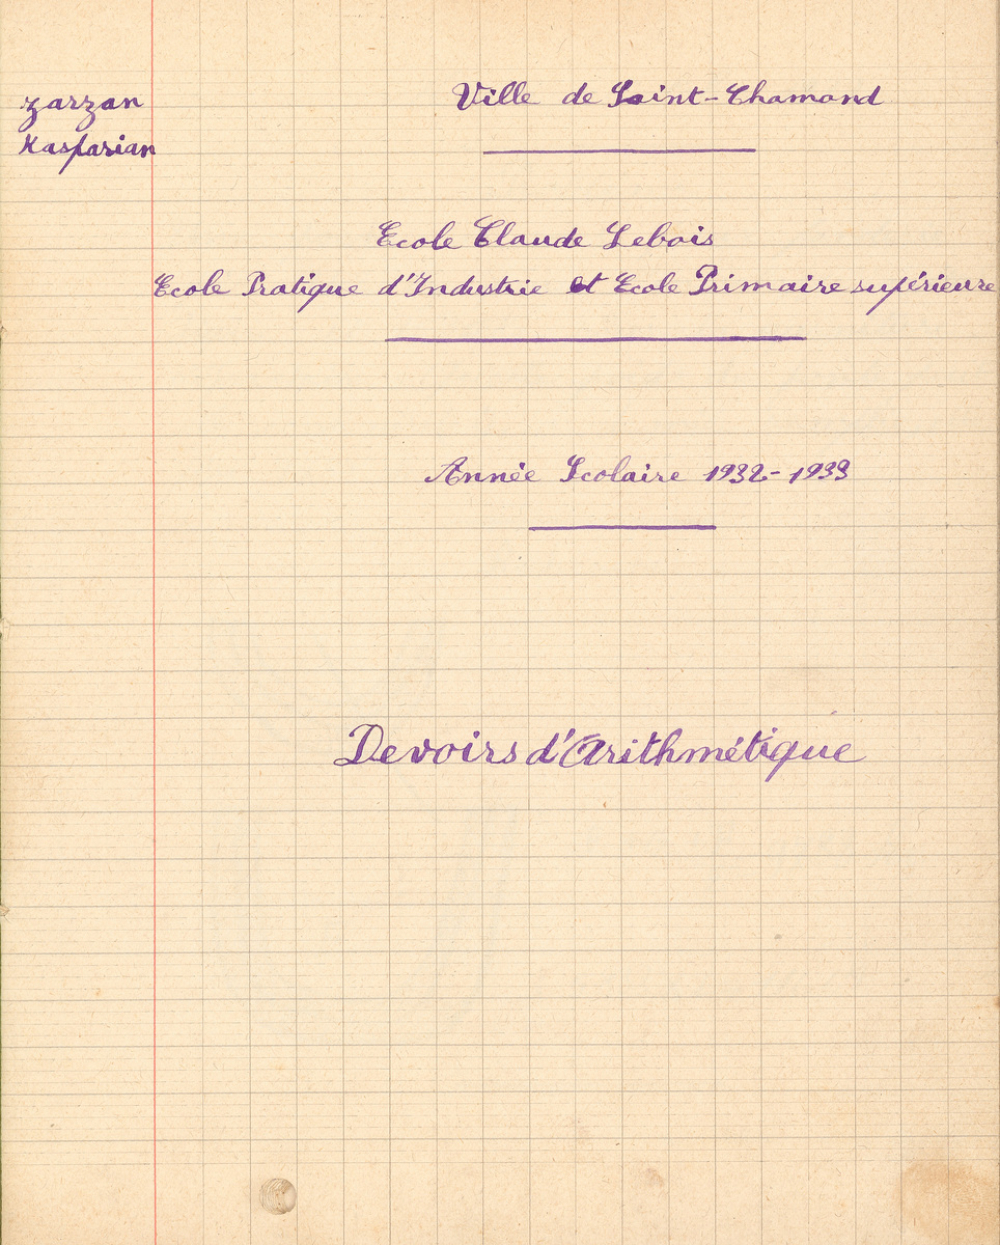 Zarzan
Kasparian
Ville de Saint-Chamond
Ecole Claude Lebois
Ecole Pratique d'Industrie et Ecole Primaire supérieure
Année Scolaire 1932-1933
Devoirs d'Arithmétique